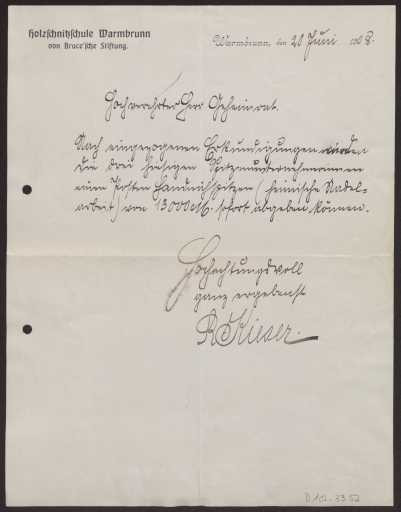 Holzschnitzschule Warmbrunn
von Bruce'sche Stiftung.
Warmbrunn, den 20 Juni 1908.
Hochverehrter Herr Geheimrat.
Nach eingezogenen Erkundigungen würden
die drei hiesigen Spitzenunternehmerinnen
einen Posten Handnähspitzen (heimische Nadel-
arbeit) von 13000 M. sofort abgeben können.
Hochachtungsvoll
ganz ergebenst
Kieser.